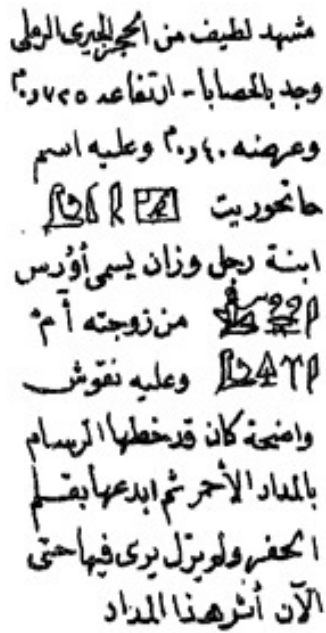 مشهد لطيف من الحجر الجيرى الرملى
وجد بالعصابا - ارتفاعه ٧٢٥و٠م
وعرضه ٤٠و٠م وعليه اسم
حاتحوريت
ابنة رجل وزان يسمى أؤرس
من زوجته أم
وعليه نقوش
واضحة كان قد خطها الرسام
بالمداد الأحمر ثم ابدعها بقلم
الحفر ولويزل يرى فيها حتى
الآن أثر هذا المداد